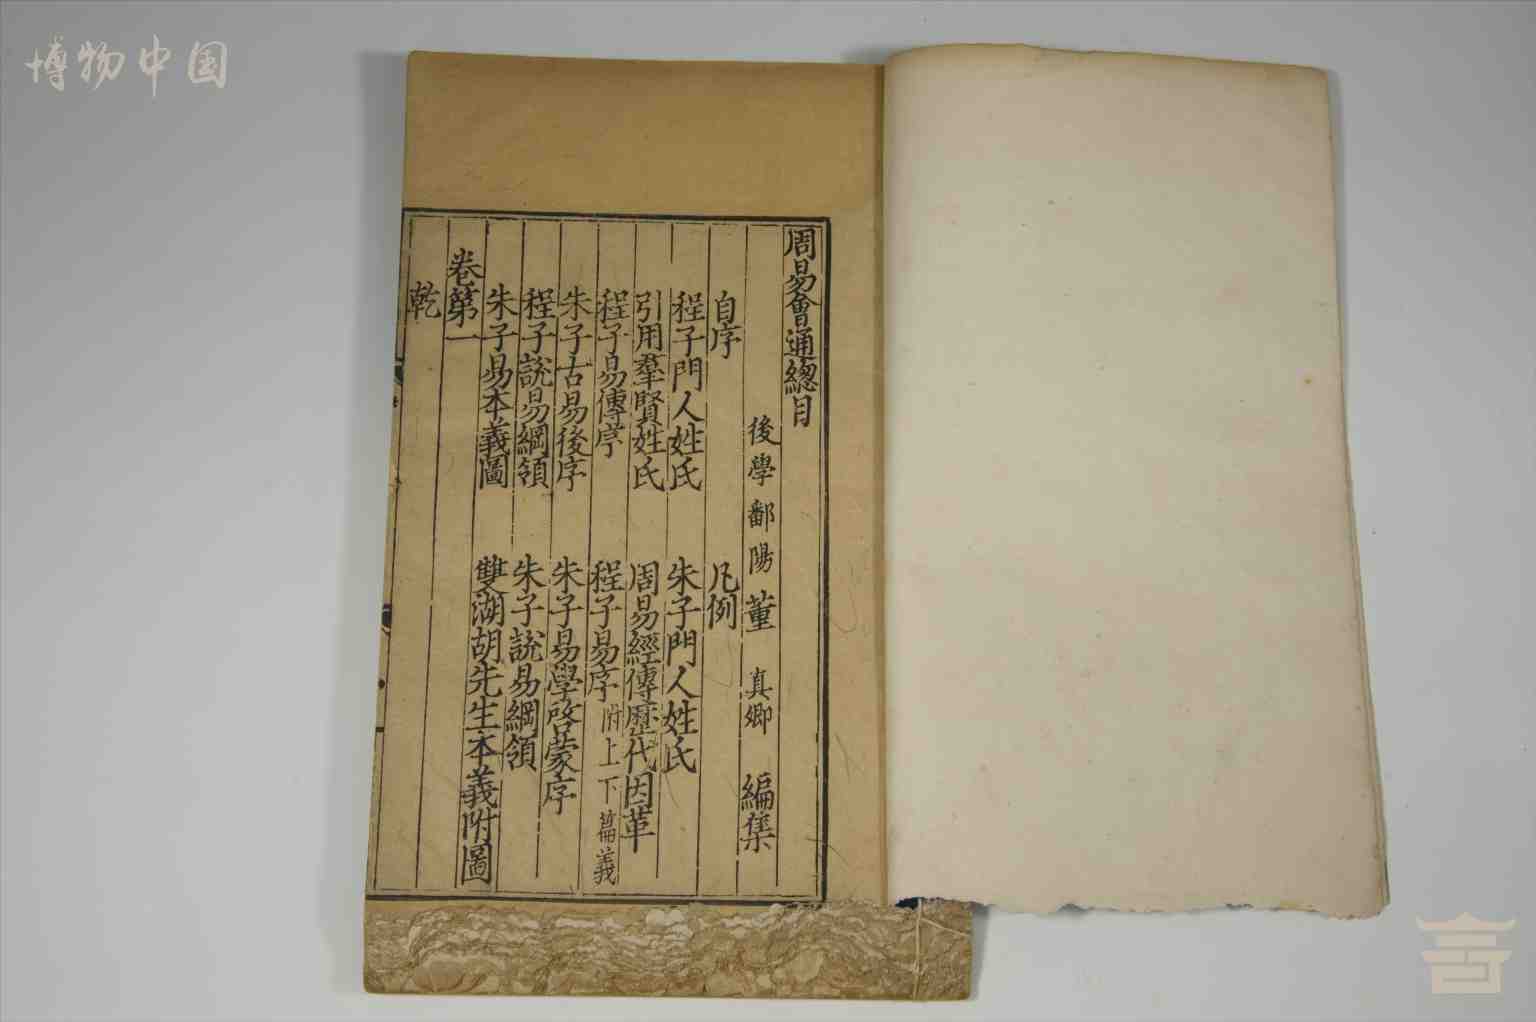 博物中国
周易會通總目
後學鄱陽董真卿編集
自序 凡例
程子門人姓氏 朱子門人姓氏
引用羣賢姓氏 周易經傳歷代因革
程子易傳序 程子易序附上下篇義
朱子古易後序 朱子易學啓蒙序
程子說易綱領 朱子說易綱領
朱子易本義圖 雙湖胡先生本義附圖
卷第一
乾